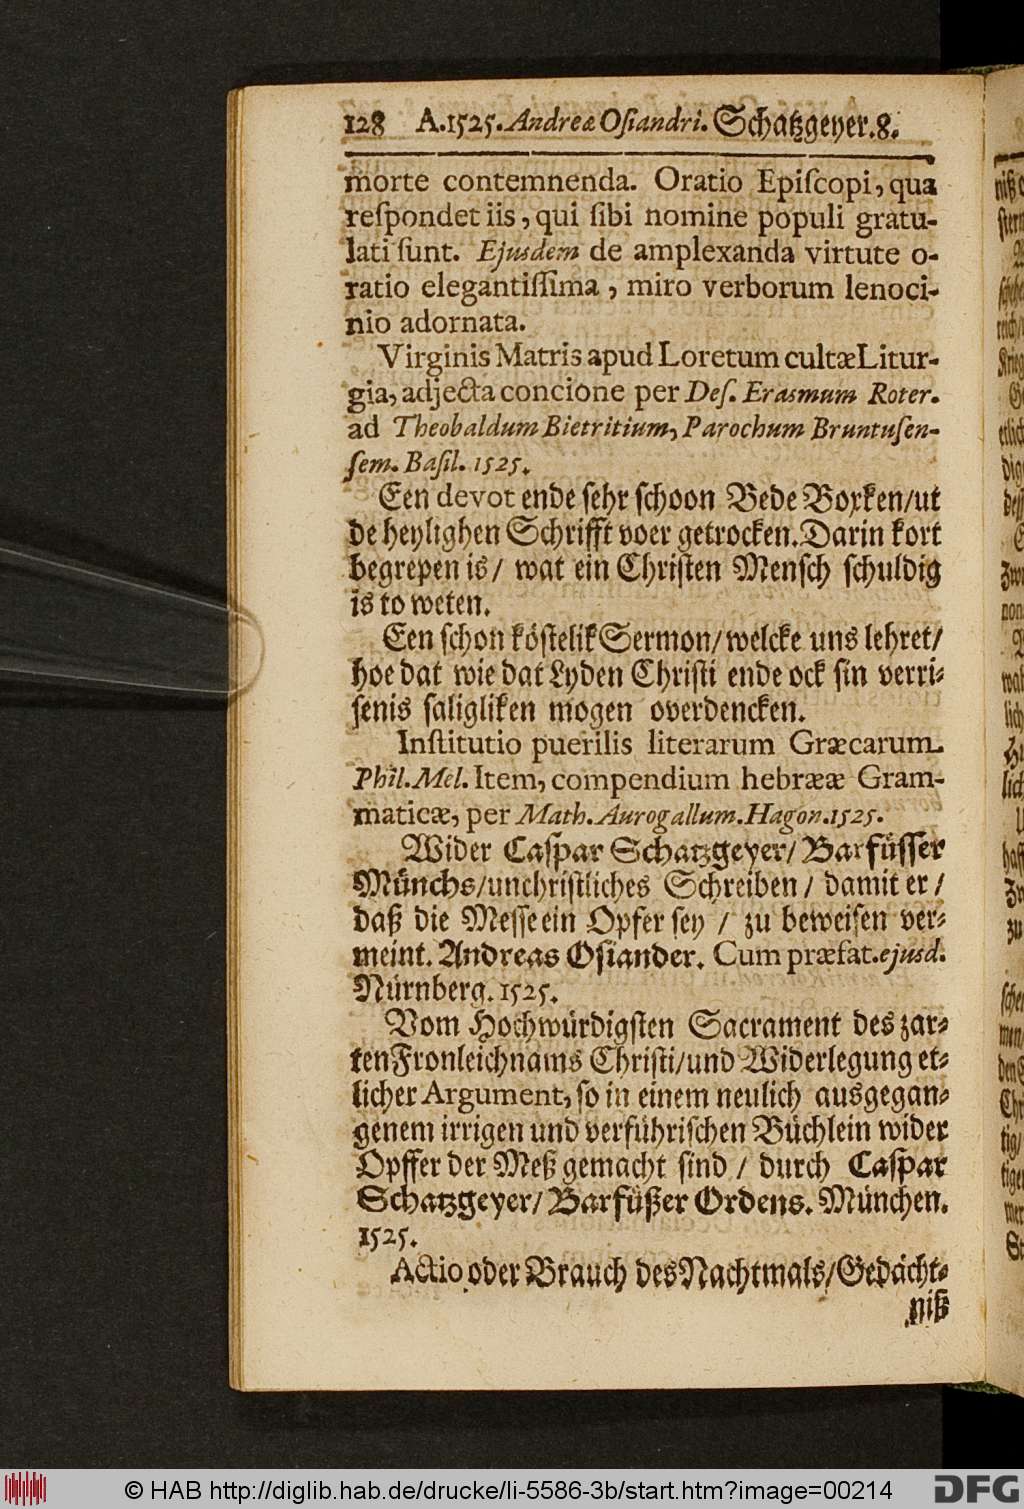 128 A.1525. Andreæ Oſiandri. Schatzgeyer. 8.
morte contemnenda. Oratio Epiſcopi, qua
reſpondet iis, qui ſibi nomine populi gratu-
lati ſunt. Ejusdem de amplexanda virtute o-
ratio elegantiſſima, miro verborum lenoci-
nio adornata.
Virginis Matris apud Loretum cultæ Litur-
gia, adjecta concione per Deſ. Erasmum Roter.
ad Theobaldum Bietritium, Parochum Bruntuſen-
ſem. Baſil. 1525.
Een devot ende ſehr ſchoon Bede Boxken/ ut
de heylighen Schrifft voer getrocken. Darin kort
begrepen is/ wat ein Chriſten Menſch ſchuldig
is to weten.
Een ſchon köſtelik Sermon/ welcke uns lehret/
hoe dat wie dat Lyden Chriſti ende ock ſin verri-
ſenis ſaligliken mogen overdencken.
Inſtitutio puerilis literarum Græcarum.
Phil. Mel. Item, compendium hebrææ Gram-
maticæ, per Math. Aurogallum. Hagon. 1525.
Wider Caſpar Schatzgeyer/ Barfüſſer
Münchs/ unchriſtliches Schreiben/ damit er/
daß die Meſſe ein Opfer ſey/ zu beweiſen ver-
meint. Andreas Oſiander. Cum præfat. ejusd.
Nürnberg. 1525.
Vom Hochwürdigſten Sacrament des zar-
ten Fronleichnams Chriſti/ und Widerlegung et-
licher Argument, ſo in einem neulich ausgegan-
genem irrigen und verführiſchen Büchlein wider
Opffer der Meß gemacht ſind/ durch Caſpar
Schatzgeyer/ Barfüßer Ordens. München.
1525.
Actio oder Brauch des Nachtmals/ Gedächt-
niß
© HAB http://diglib.hab.de/drucke/li-5586-3b/start.htm?image=00214
DFG